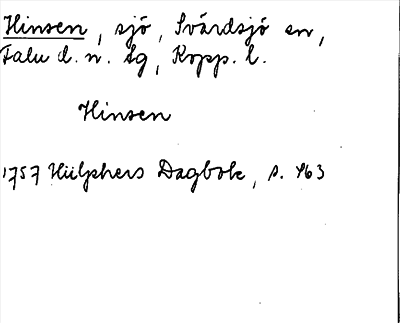 Hinsen, sjö, Svärdsjö sn,
Falu d. n. tg, Kopp. l.
Hinsen
1757 Hülphers Dagbok, s. 463